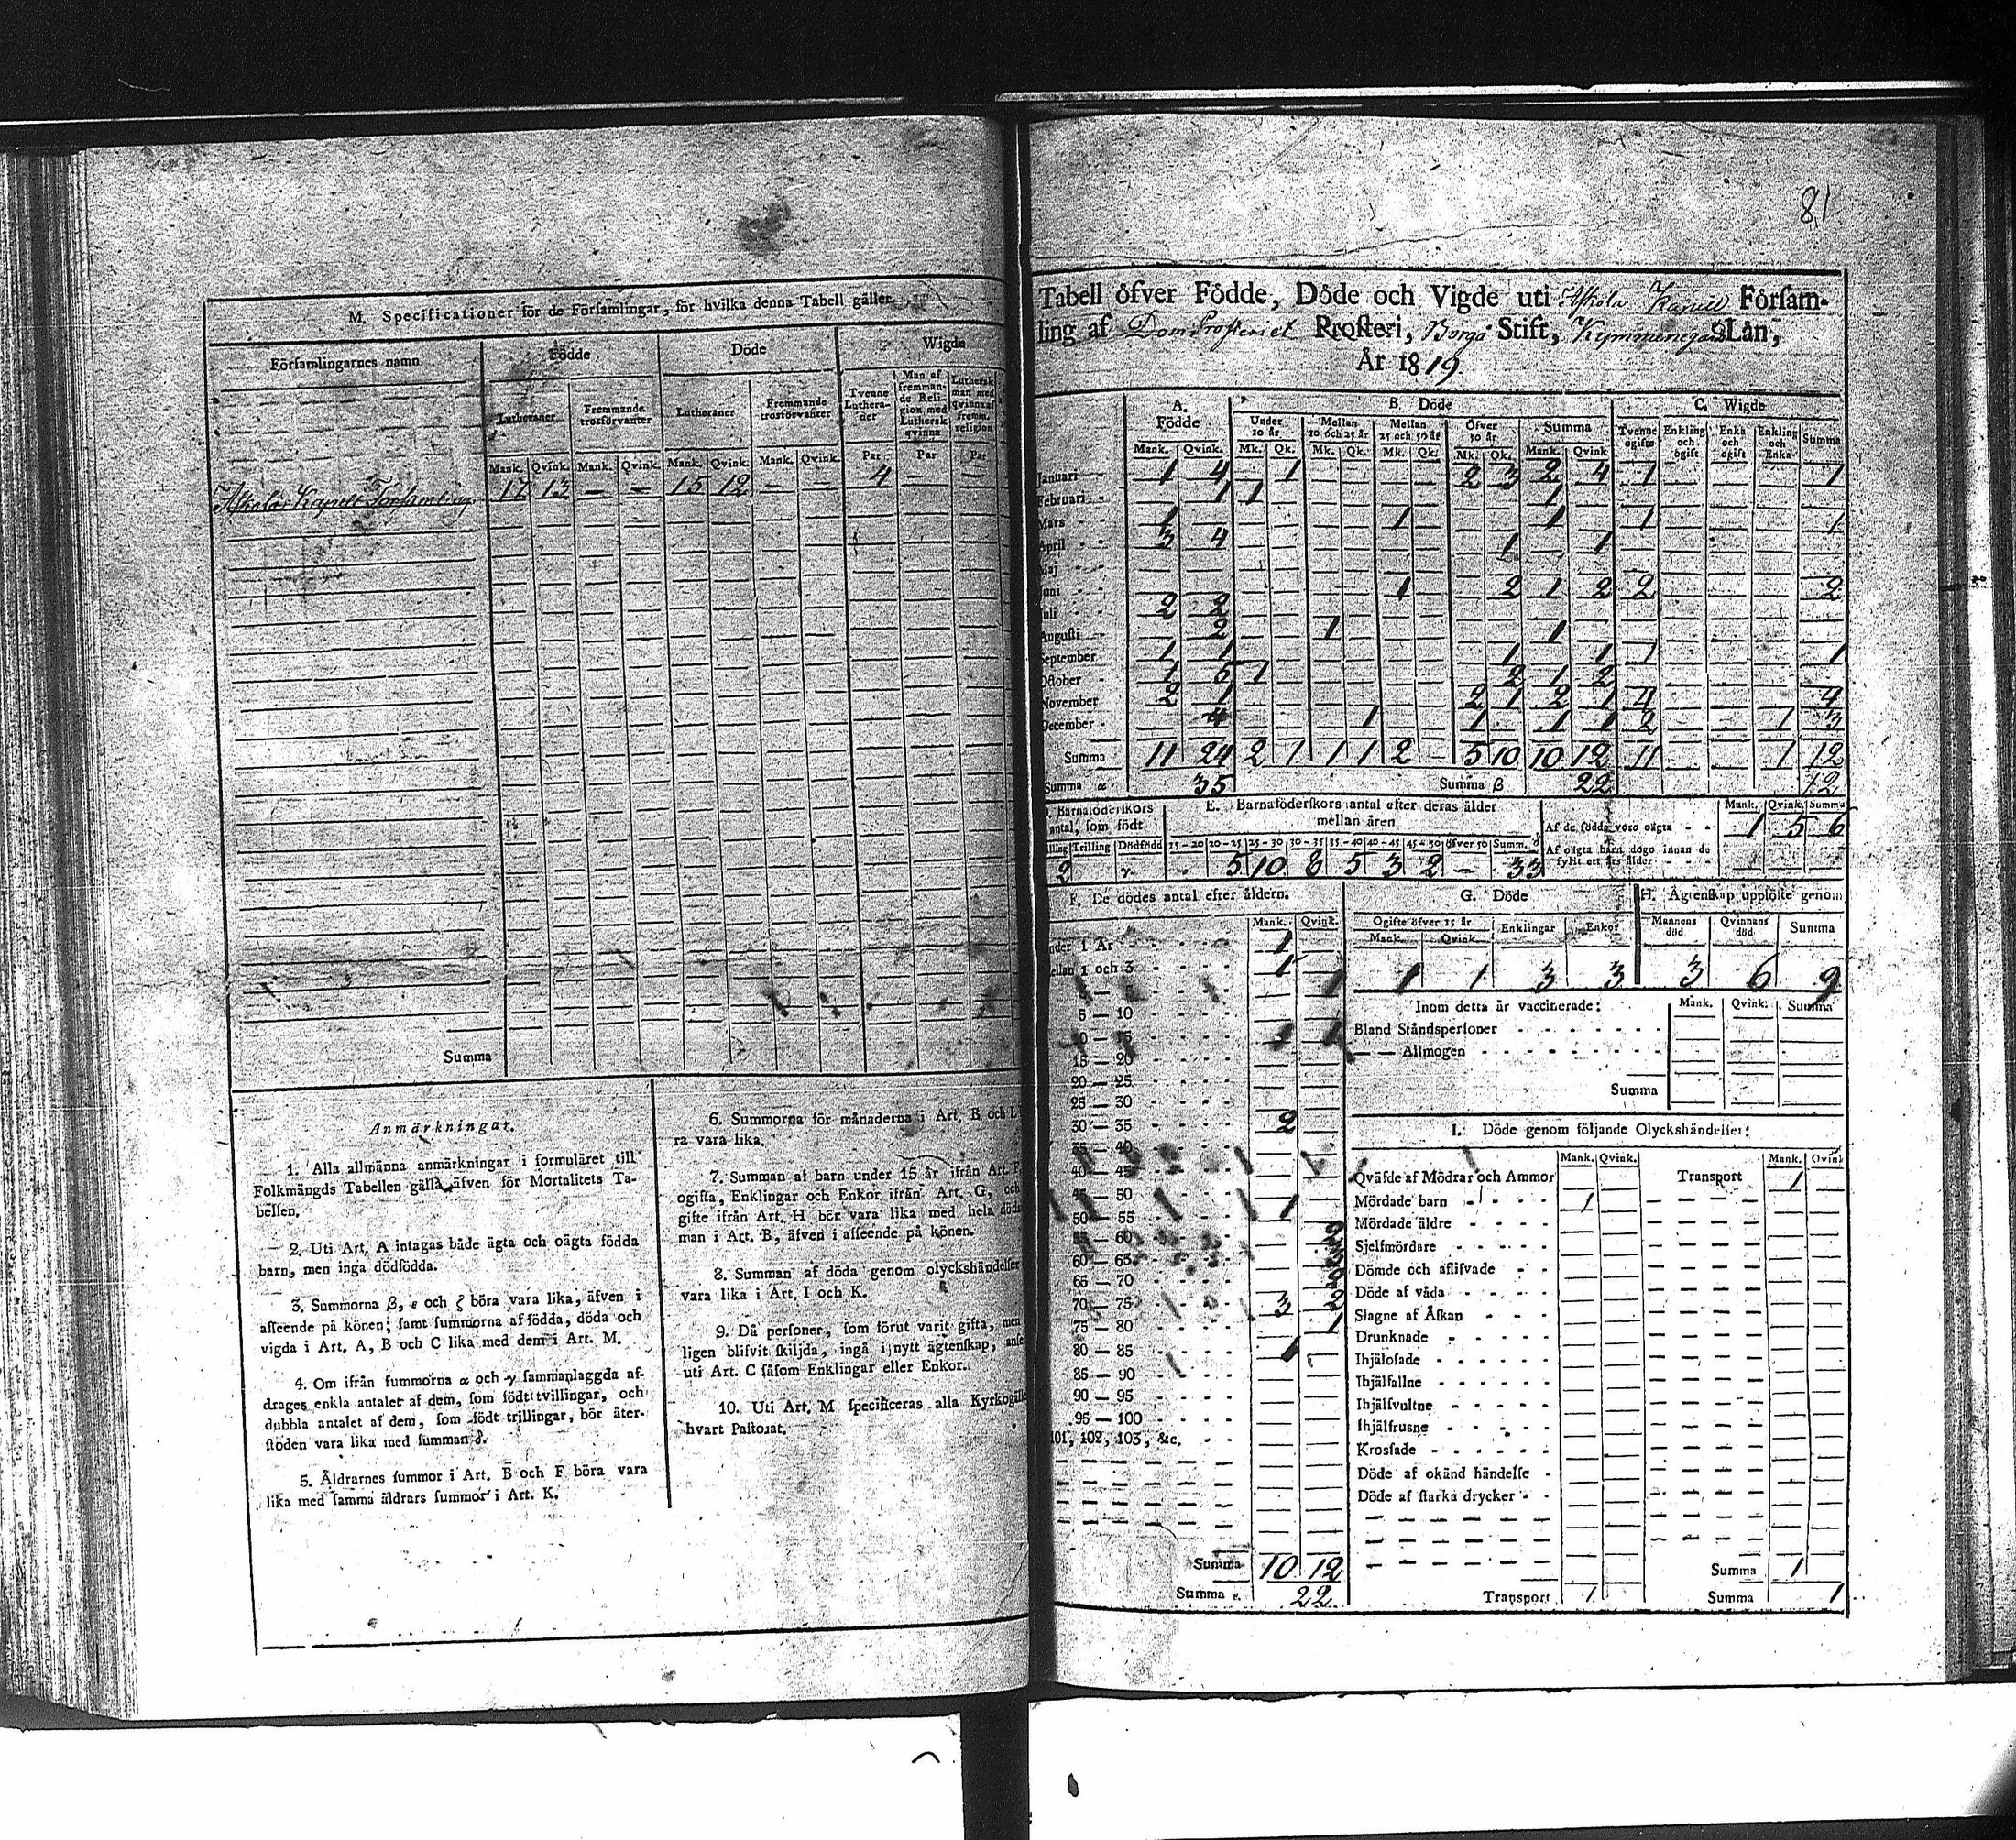 M. Specificationer för de Församlingar, för hvilka denna Tabell gäller.
Församlingarnes namn
Födde
Döde
Wigde
Lutheraner
Fremmande trosförvanter
Lutheraner
Fremmande trosförvanter
Tvenne Lutheraner
Man af fremmande Religion med Luthersk qvinna
Luthersk man med qvinna af fremm. religion
Mank. Qvink. Mank. Qvink. Mank. Qvink. Mank. Qvink. Par Par Par
Askola Kapell Församling 17 13 — — 15 12 — — 4 — —
Summa
Anmärkningar.
1. Alla allmänna anmärkningar i formuläret till
Folkmängds Tabellen gälla äfven för Mortalitets Ta-
bellen.
2. Uti Art. A intagas både ägta och oägta födda
barn, men inga dödfödda.
3. Summorna β, ε och ζ böra vara lika, äfven i
afseende på könen; samt summorna af födda, döda och
vigda i Art. A, B och C lika med dem i Art. M.
4. Om ifrån summorna α och γ sammanlaggda af-
drages enkla antalet af dem, som födt tvillingar, och
dubbla antalet af dem, som födt trillingar, bör åter-
stoden vara lika med summan δ.
5. Åldrarnes summor i Art. B och F böra vara
lika med samma åldrars summor i Art. K.
6. Summorna för månaderna i Art. B och L
ra vara lika.
7. Summan af barn under 15 år ifrån Art. F
ogifta, Enklingar och Enkor ifrån Art. G, och
gifte ifrån Art. H bör vara lika med hela döda
man i Art. B, äfven i afseende på könen.
8. Summan af döda genom olyckshändelser
vara lika i Art. I och K.
9. Då personer, som förut varit gifta, men
ligen blifvit skiljda, ingå i nytt ägtenskap, anse
uti Art. C såsom Enklingar eller Enkor.
10. Uti Art. M specificeras alla Kyrkogille
hvart Pastorat.
81
Tabell öfver Födde, Döde och Vigde uti Askola Kapell Försam-
ling af DomProsteriet Prosteri, Borgå Stift, Kymmenegårds Län,
År 1819
A. Födde
B. Döde
C. Wigde
Under 10 år
Mellan 10 och 25 år
Mellan 25 och 50 år
Öfver 50 år
Summa
Tvenne ogifte
Enkling och ogift
Enka och ogift
Enkling och Enka
Summa
Mank. Qvink. Mk. Qk. Mk. Qk. Mk. Qk. Mk. Qk. Mank. Qvink
Januari 1 4 1 2 3 2 4 1 1
Februari 1 1 1
Mars 1 1 1 1 1
April 3 4 1 1
Maj
Juni 1 2 1 2 2 2
Juli 2 2
Augusti 2 1 1
September 1 1 1 1 1 1
October 1 5 1 2 1 2
November 2 1 2 1 2 1 4 4
December 4 1 1 1 1 2 1 3
Summa 11 24 2 1 1 1 2 - 5 10 10 12 11 1 12
Summa α 35 Summa β 22 12
D. Barnaföderskors antal, som födt
E. Barnaföderskors antal efter deras ålder
mellan åren
Mank. Qvink. Summa
Af de födde voro oägta 1 5 6
Af oägta barn dogo innan de
fyllt ett års ålder
Trilling Dödfödd 15—20 20—25 25—30 30—35 35—40 40—45 45—50 öfver 50 Summ. δ
2 γ. - 5 10 8 5 3 2 — 33
F. De dödes antal efter åldern.
Mank. Qvink.
nder 1 År 1
ellan 1 och 3 1
5 — 10
15 — 20
20 — 25
25 — 30
30 — 35 2
35 — 40
40 — 45
50 — 55
55 — 60
60 — 65
65 — 70
70 — 75 3
75 — 80
80 — 85 1
85 — 90
90 — 95
95 — 100
101, 102, 103, &c.
Summa 10 12
Summa ε. 22
G. Döde
Ogifte öfver 15 år
Enklingar
Enkor
Mank. Qvink.
1 1 3 3
H. Ägtenskap upplöste genom
Mannens död
Qvinnans död
Summa
3 6 9
Inom detta år vaccinerade: Mank. Qvink. Summa
Bland Ståndspersoner
— — Allmogen
Summa
I. Döde genom följande Olyckshändelser:
Mank. Qvink. Mank. Qvink
Qväfde af Mödrar och Ammor Transport 1
Mördade barn 1
Mördade äldre
Sjelfmördare
Dömde och aflifvade
Döde af våda
Slagne af Åskan
Drunknade
Ihjälosade
Ihjälfallne
Ihjälsvultne
Ihjälfrusne
Krossade
Döde af okänd händelse
Döde af starka drycker
Summa 1
Transport 1 Summa 1